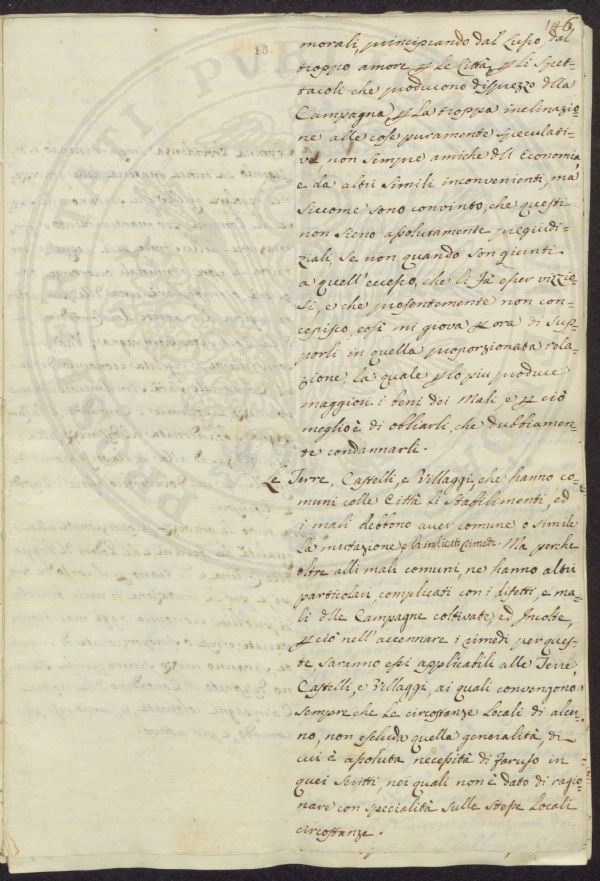 146
13.
morali, principiando dal Lusso, dal
troppo amore p le Città, p li Spet-
tacoli che producono disprezzo dlla
Campagna, p la troppa inclinazio-
ne alle cose puramente speculati-
ve, non sempre amiche dll Economia,
e da altri simili inconvenienti, ma
siccome sono convinto, che questi
non sieno assolutamente pregiudi-
ziali, se non quando son giunti
a quell'eccesso, che li fà esser vizzio-
si, e che presentemente non con-
cepisco, così mi giova p ora di sup-
porli in quella proporzionata rela-
zione, la quale p lo piu produce
maggiori i beni dei Mali e p ciò
meglio è di obliarli, che dubbiamen-
te condannarli.
Le Terre, Castelli, e Villaggi, che hanno co-
muni colle Città li Stabilimenti, ed
i mali debbono aver comune o simile
la mutazione p li indicati rimedi. Ma perche
oltre alli mali comuni, ne hanno altri
particolari, complicati con i difetti, e ma-
li dlle Campagne coltivate, ed Incolte,
p ciò nell'accennare i rimedi per ques-
te saranno essi applicabili alle Terre,
Castelli, e Villaggi, ai quali convengono
sempre che le circostanze locali di alcu-
no, non escluda quella generalità, di
cui è assoluta necessità di far uso in
quei scritti, nei quali non è dato di ragio-
nare con specialità sulle stesse locali
circostanze.